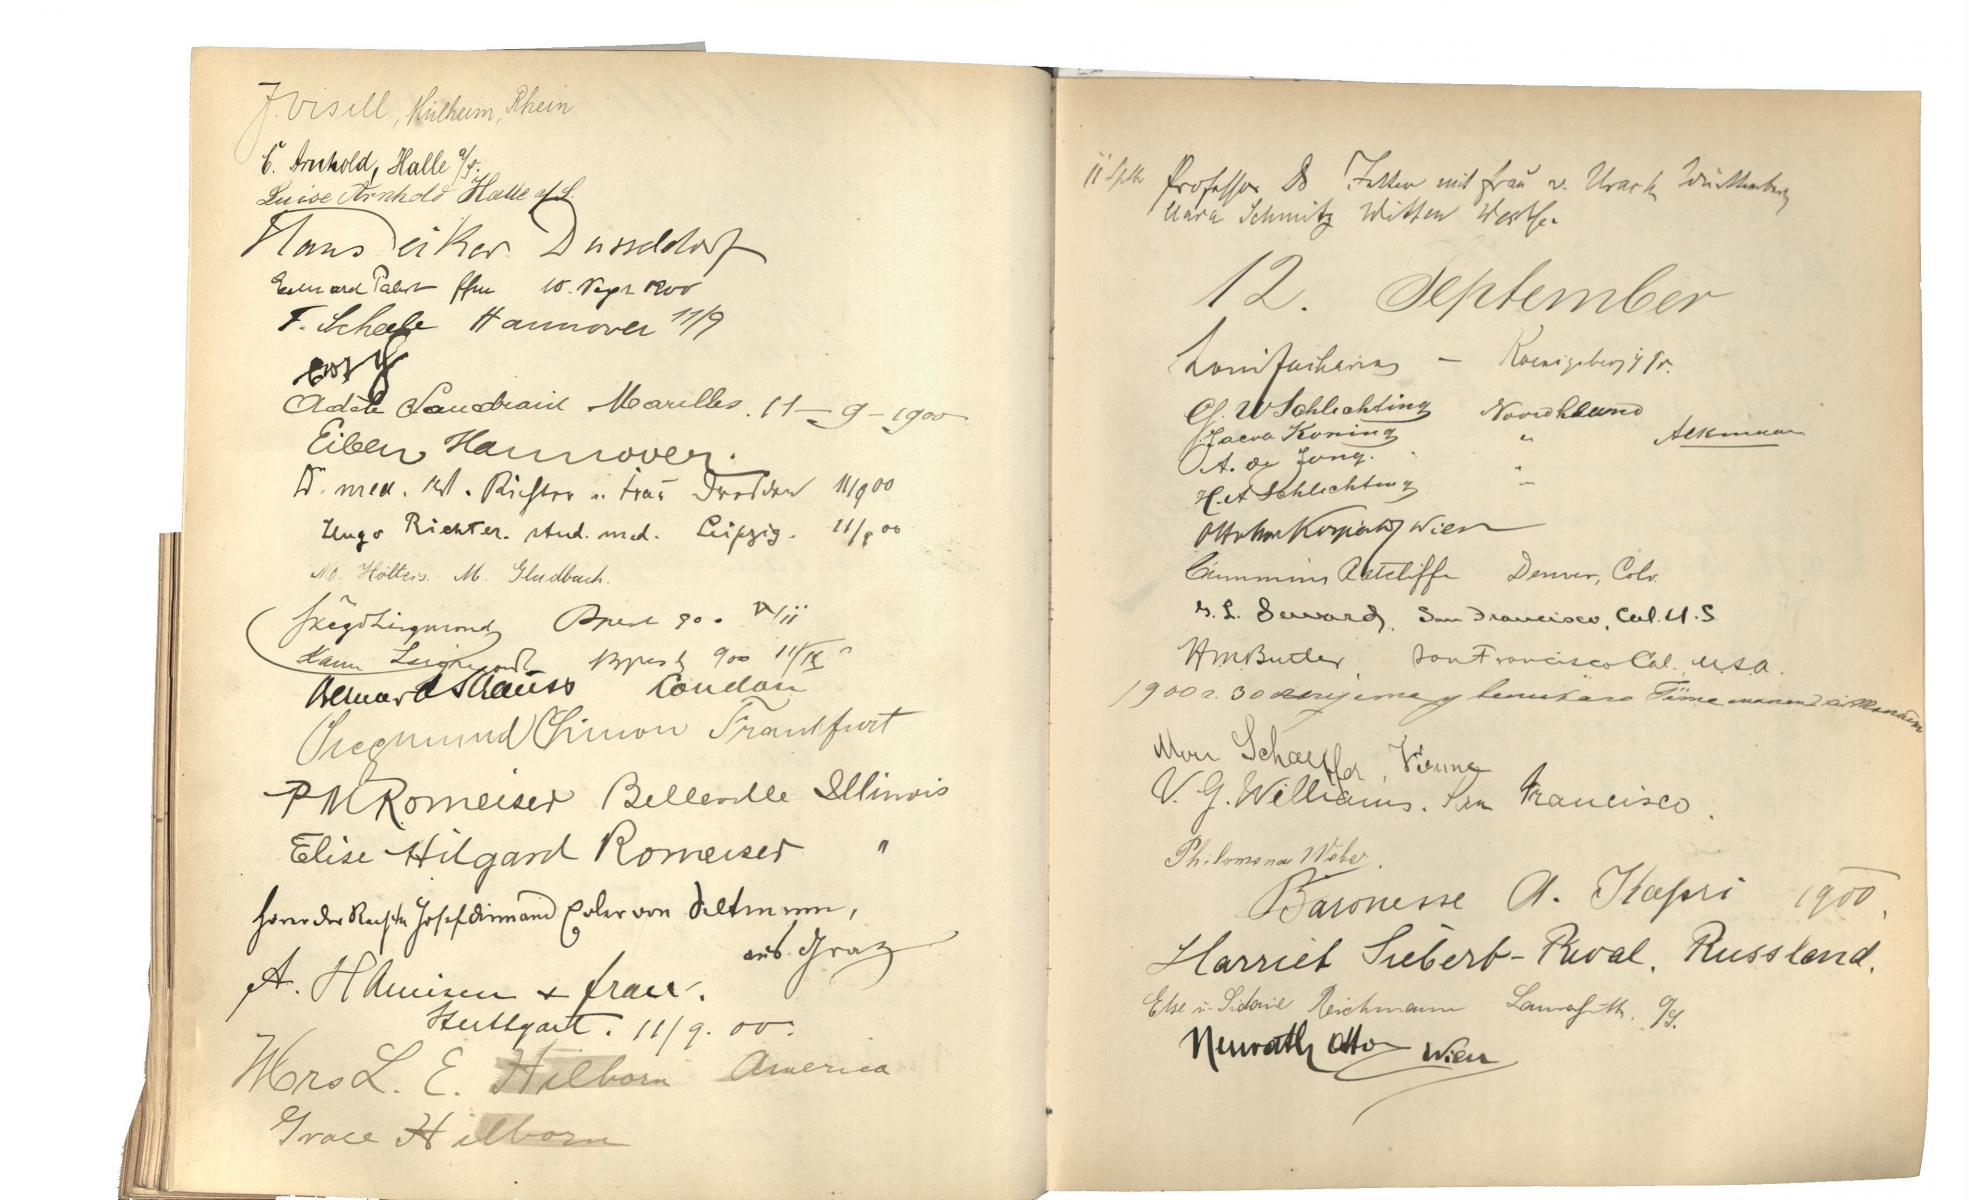 J. Visell, Mülheim, Rhein
C. Arnhold, Halle a/S.
Luise Arnhold Halle a/S.
Hans Deiker Düsseldorf
Pabst ffm 10. Sept 1900
F. Scheele Hannover 11/9
Adèle Marilles. 11 – 9 – 1900
Eiben Hannover.
Dr. med. Richter u. Frau Dresden 11/9 00
Hugo Richter. stud. med. Leipzig. 11/9 00
Hölters. M. Gladbach.
Bpest
Bpest 900 11/IX
Bernard Strauss London
Siegmund Simon Frankfurt
P M Romeiser Belleville Illinois
Elise Hilgard Romeiser "
Hörer der Rechte Josef Edler von
aus Graz
A. & Frau.
Stuttgart. 11/9. 00.
Mrs L. E. Hilborn America
Grace Hilborn
11 Sptb Professor Dr mit Frau v. Urach Württemberg
Clara Schmitz Witten Westf.
12. September
Zacharias — Koenigsberg i/Pr.
W Schlechting Noordholland
Jacoa Koning " Alkmaar
A. de Jong. "
H. A Schlechting "
Ottokar Wien
Cummins Ratcliffe Denver, Colo.
S. L. Seward, San Francisco, Cal. U.S
H M Butler San Francisco Cal. U.S.A.
1900 a. 30
Schaeffer, Vienne
V. G. Williams. San Francisco.
Philomena Weber.
Baronesse A. Kapri 1900.
Harriet Siebert - Reval. Russland.
Else u. Sidonie Reichmann Laurahütte. O/S.
Neurath Otto Wien